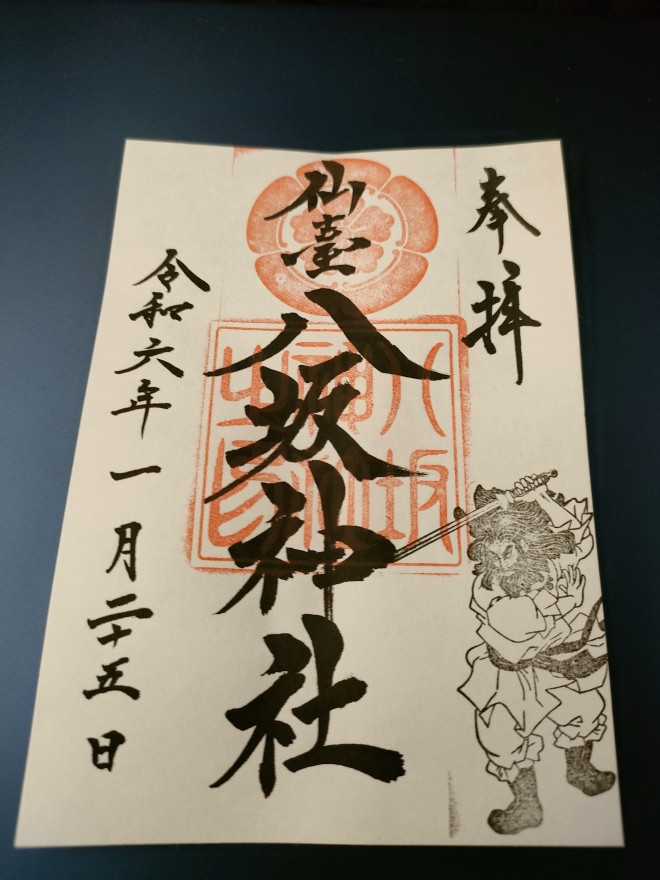 奉拝
仙臺
八坂神社
八坂
神社
之印
令和六年一月二十五日